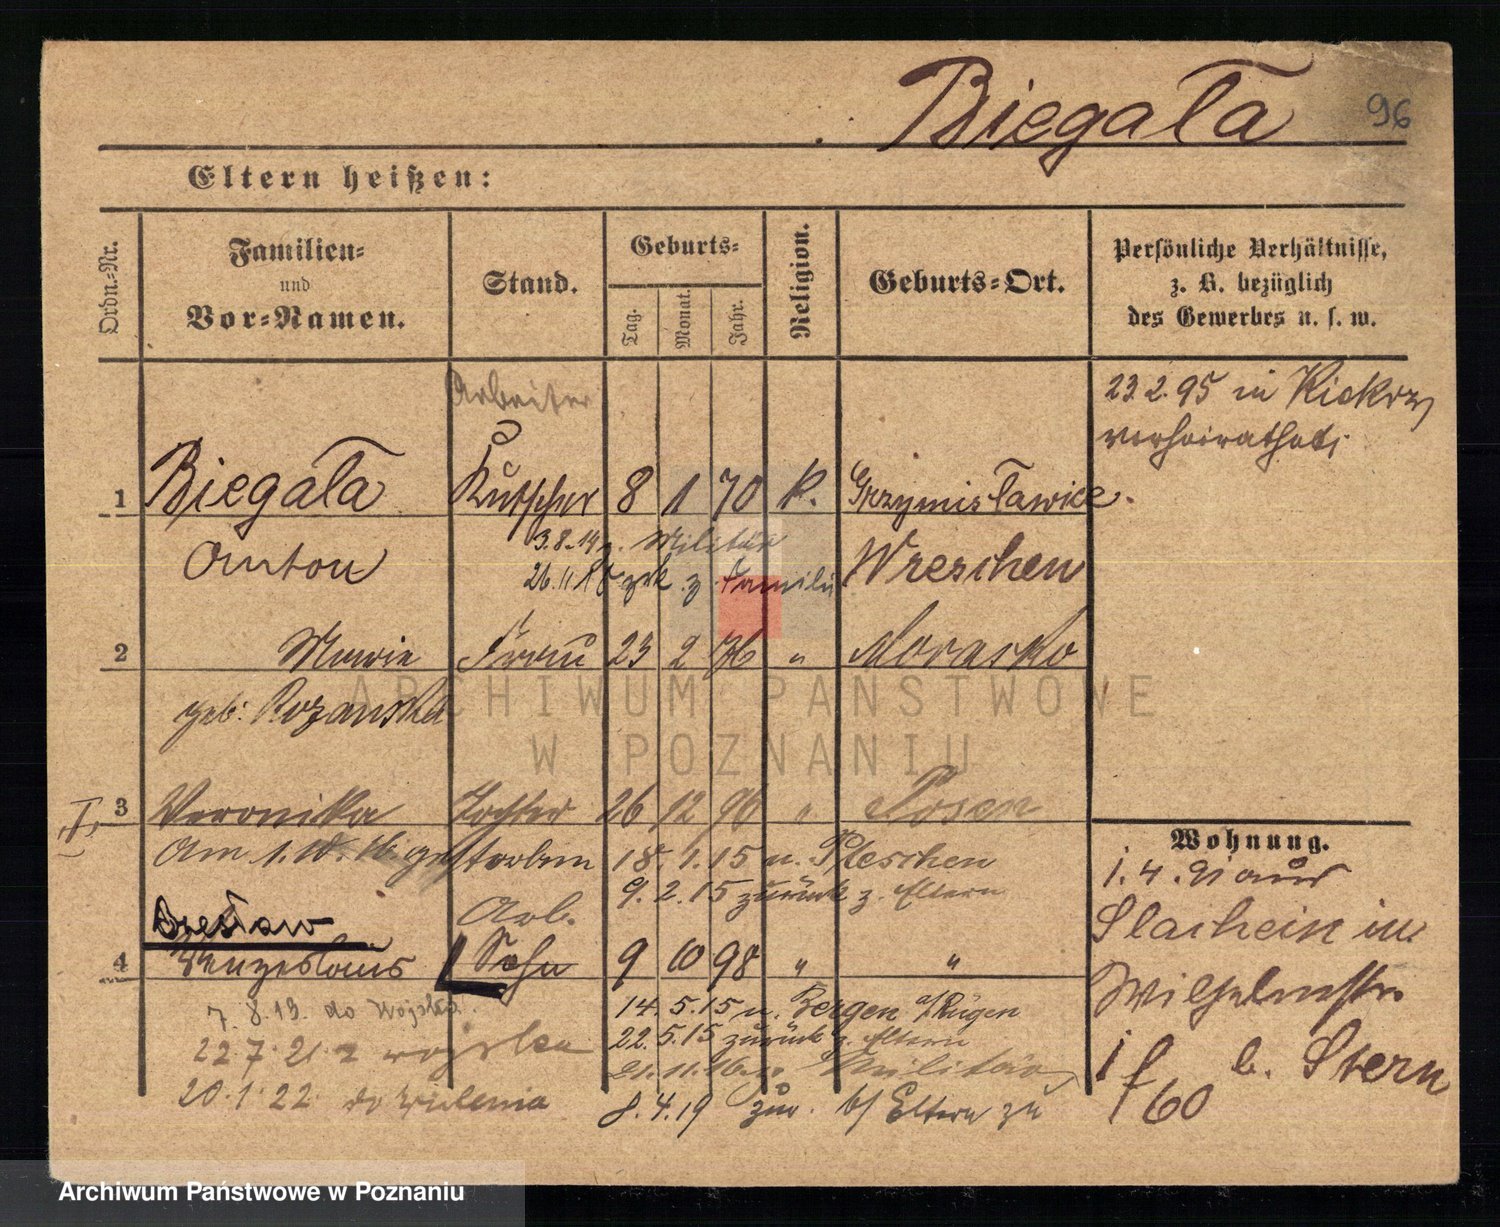 Biegała 96
Eltern heißen:
Ordn.-Nr.
Familien-
und
Vor-Namen.
Stand.
Geburts-
Tag.
Monat.
Jahr.
Religion.
Geburts-Ort.
Persönliche Verhältnisse,
z. B. bezüglich
des Gewerbes u. s. w.
Arbeiter
23.2.95 in Kiekrz
verheirathet
1 Biegała Kutscher 8 1 70 k. Grzymisławice
3.8.14 z. Militär
Anton Wreschen
26.11.18 zrk z. Familie
2 Marie Frau 23 2 76 " Morasko
geb: Rozanska
ARCHIWUM PAŃSTWOWE
W POZNANIU
I, 3 Veronika Tochter 26 12 96 " Posen
Am 1.10.16 gestorben 18.1.15 n. Pleschen
9.2.15 zurück z. Eltern
Wohnung.
1.4.91 aus
Arb.
4 Wenzeslaus Sohn 9 10 98 " "
in
Wilhelmstr.
7.8.19. do wojska
14.5.15 n. Bergen a/Rügen
22.5.15 zurück z. Eltern
22.7.21 z wojska
21.11.16 Militär
b. Stern
20.1.22 do
8.4.19 zur. b/ Eltern zu
f 60
Archiwum Państwowe w Poznaniu